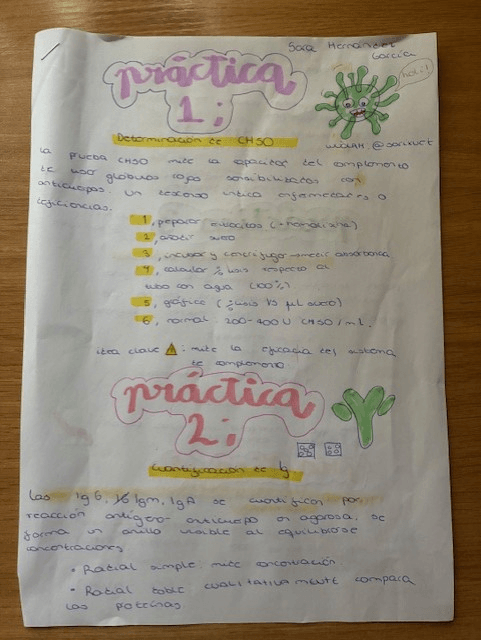 Sara Hernández
García
práctica
1;
hol;!
Determinación de CH50
WUOLAH: @sarixuet
La prueba CH50 mide la capacidad del complemento
de uso glóbulos rojos sensibilizados con
anticuerpos. Un descenso indica enfermedades o
deficiencias.
1, preparar eritocitos (+hemolisina)
2, añadir suero
3, incubar y centrifugar → medir absorbancia
4, calcular % lisis respecto al
tubo con agua (100%)
5, gráfica (% lisis VS µl suero)
6, normal 200-400 U CH50/ml.
idea clave ⚠: mide la eficacia del sistema
de complemento.
práctica
2;
cuantificación de Ig
Las IgG, IgM, IgA se cuantifican por
reacción antígeno-anticuerpo en agarosa, se
forma un anillo visible al equilibrio de
concentraciones
• Radial simple mide concentración
• Radial doble cualitativamente compara
las proteínas